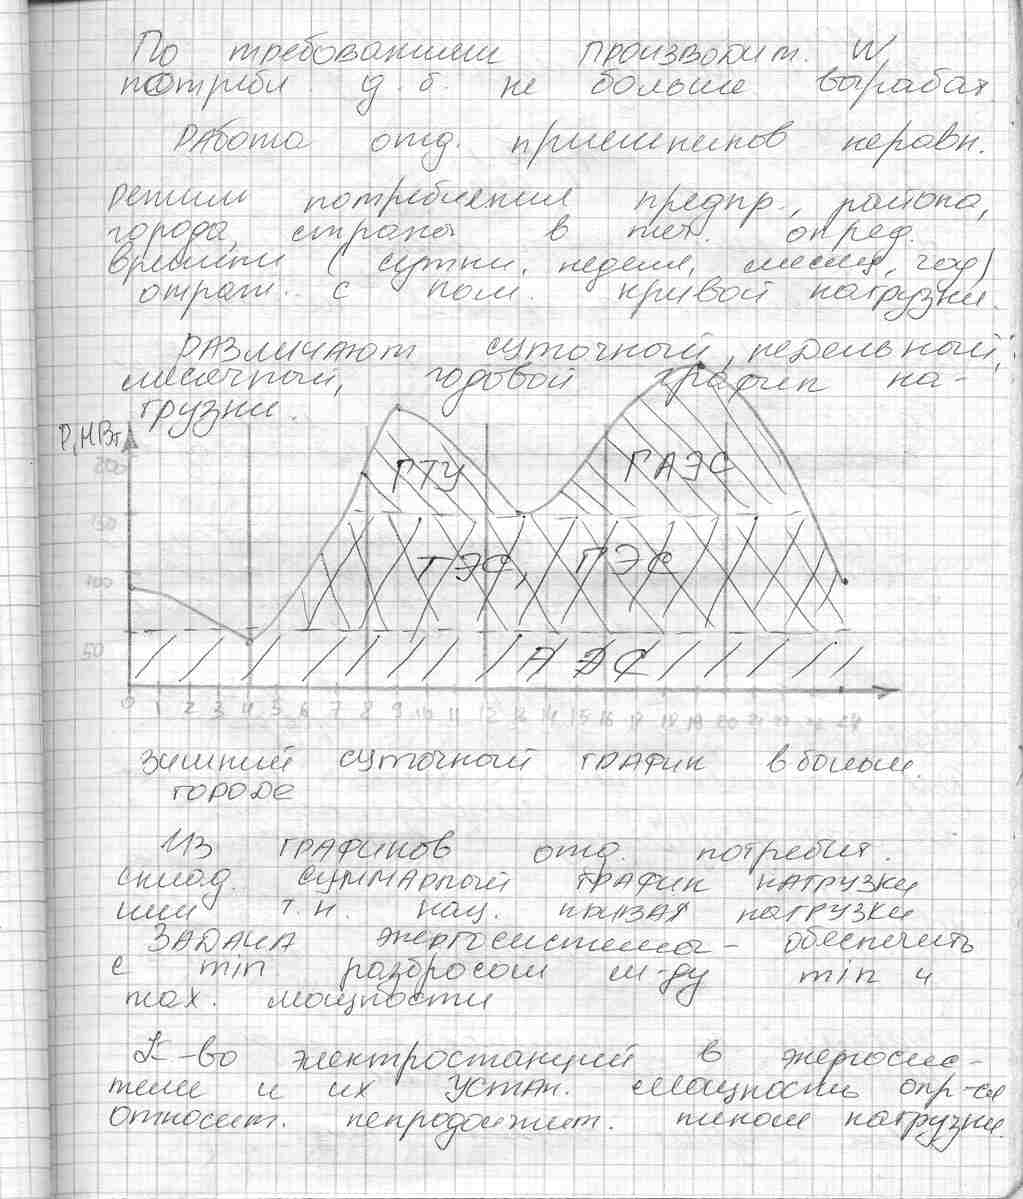 По требованиям производит. W
потребл. д.б. не больше выработ.
Работа отд. приемников неравн.
Режим потребления предпр., района,
города, страны в теч. опред.
времени (сутки, неделя, месяц, год)
отраж. с пом. кривой нагрузки.
Различают суточный, недельный,
месячный, годовой график на-
грузки.
P, МВт
200
ГТУ ГАЭС
150
ТЭС, ГЭС
100
50
АЭС
0 1 2 3 4 5 6 7 8 9 10 11 12 13 14 15 16 17 18 19 20 21 22 23 24
Зимний суточный график в больш.
городе
Из графиков отд. потребит.
склад. суммарный график нагрузки
или т.н. нац. кривая нагрузки
Задача энергосистемы - обеспечить
с min разбросом м-ду min и
max. мощности
К-во электростанций в энергосис-
теме и их устан. мощность опр-ся
относит. непродолжит. пиком нагрузки.